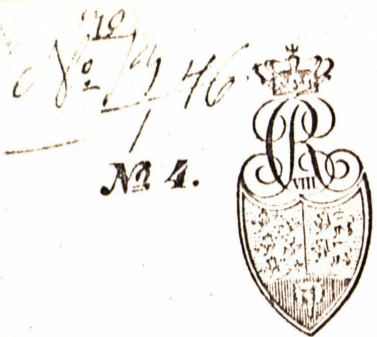 No 19/1 46.
No 4.
CR
VIII